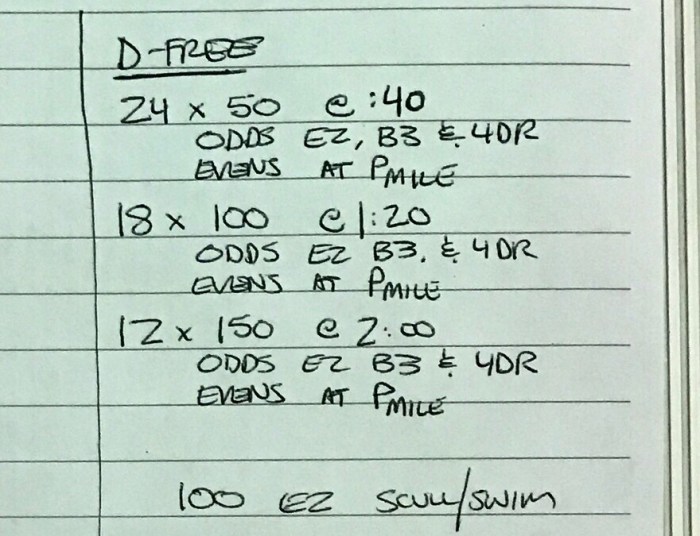 D-FREE
24 x 50 @ :40
ODDS EZ, B3 & 4DR
EVENS AT PMILE
18 x 100 @ 1:20
ODDS EZ B3, & 4DR
EVENS AT PMILE
12 x 150 @ 2:00
ODDS EZ B3 & 4DR
EVENS AT PMILE
100 EZ SCULL/SWIM